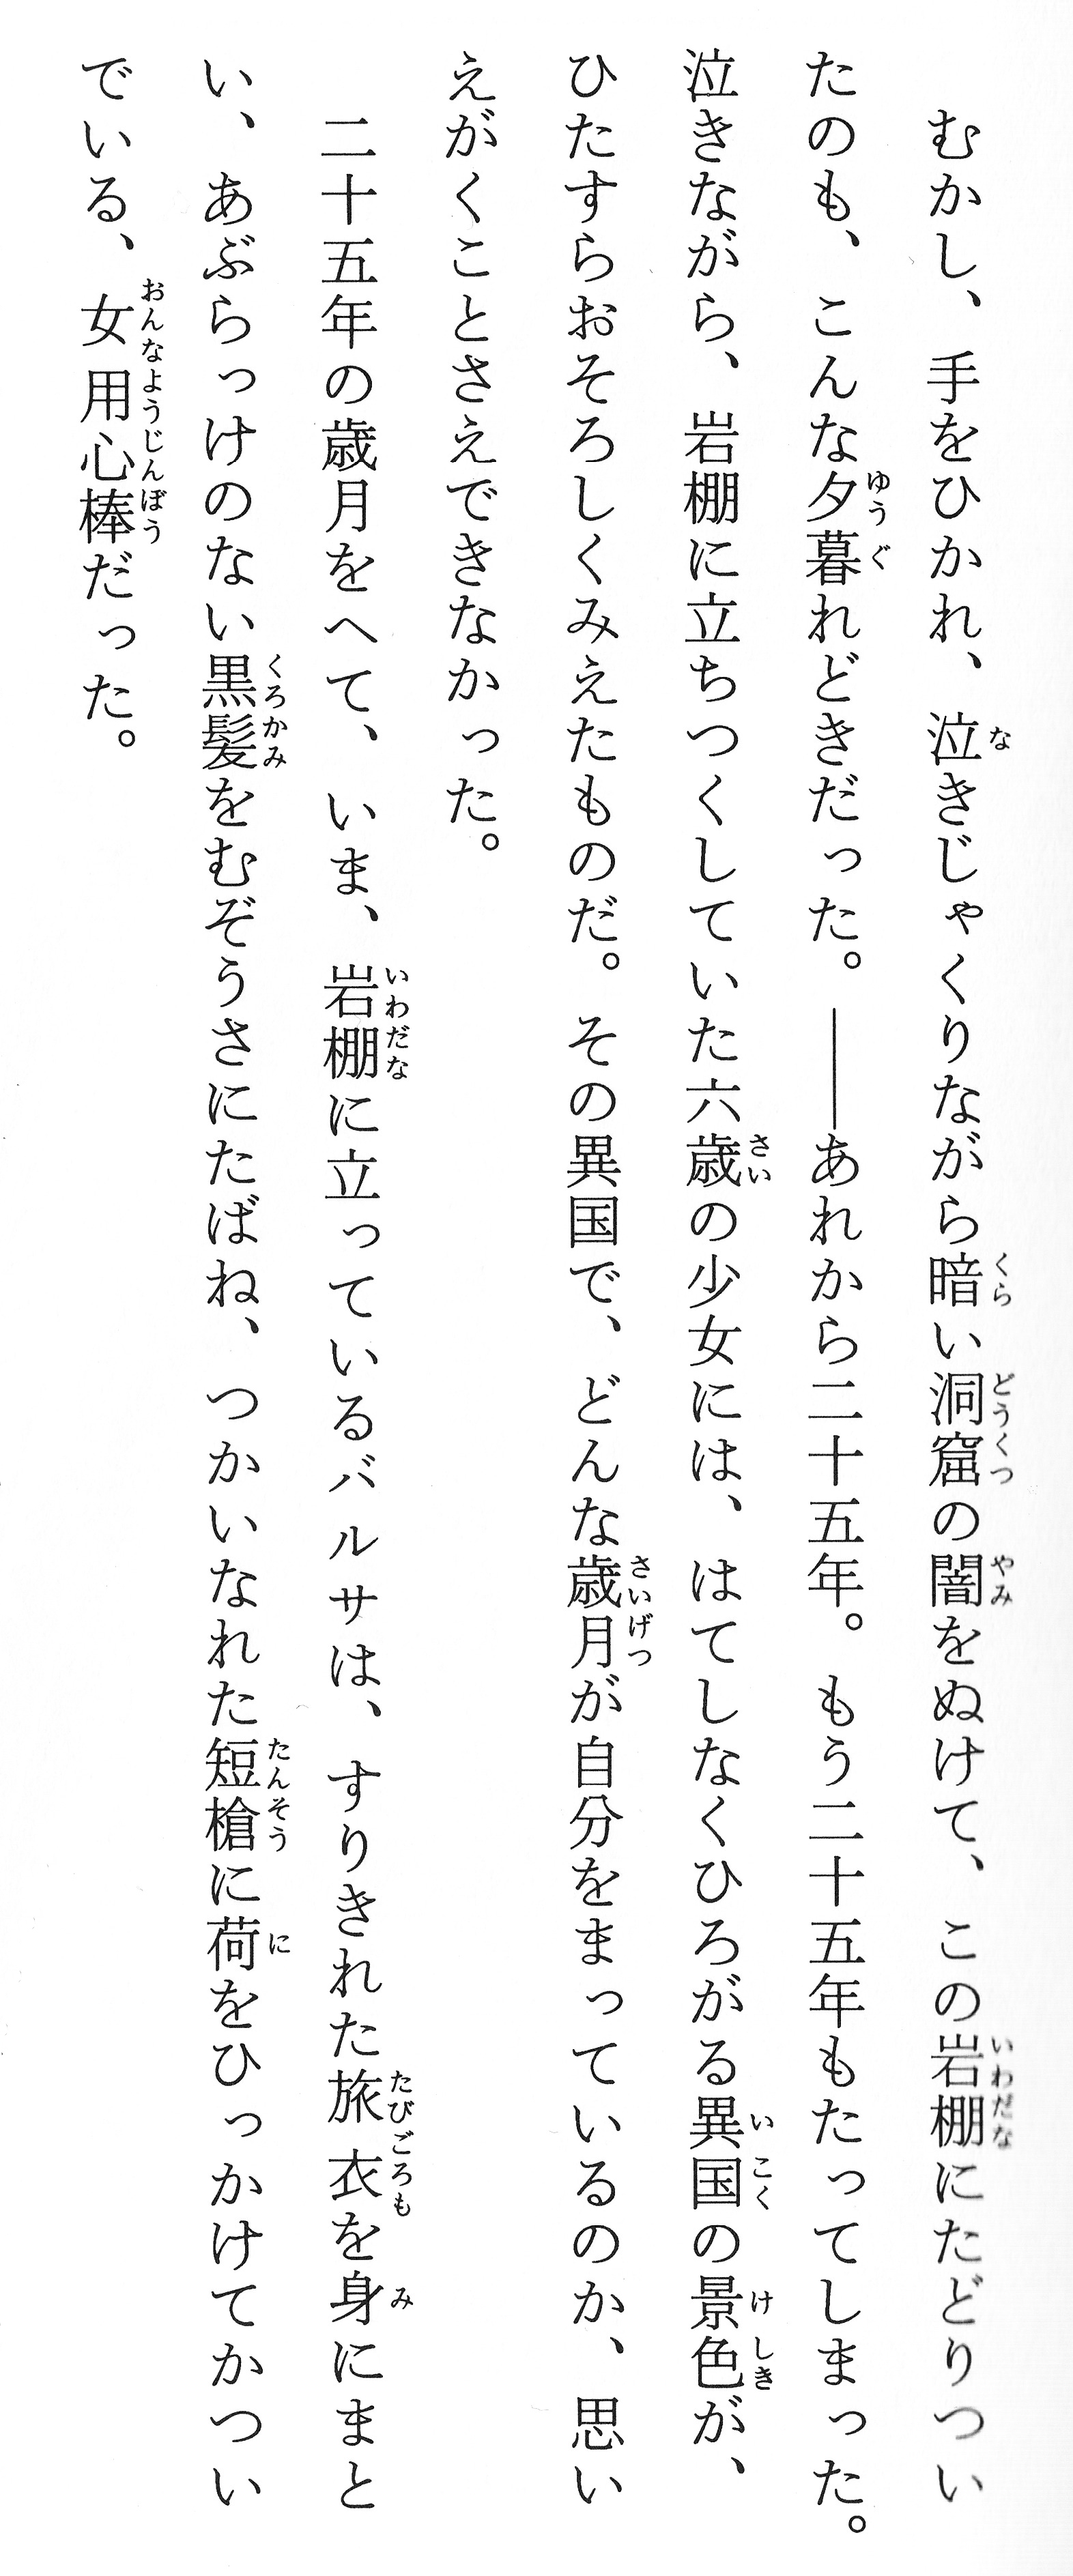 むかし、手をひかれ、泣きじゃくりながら暗い洞窟の闇をぬけて、この岩棚にたどりつい
たのも、こんな夕暮れどきだった。――あれから二十五年。もう二十五年もたってしまった。
泣きながら、岩棚に立ちつくしていた六歳の少女には、はてしなくひろがる異国の景色が、
ひたすらおそろしくみえたものだ。その異国で、どんな歳月が自分をまっているのか、思い
えがくことさえできなかった。
二十五年の歳月をへて、いま、岩棚に立っているバルサは、すりきれた旅衣を身にまと
い、あぶらっけのない黒髪をむぞうさにたばね、つかいなれた短槍に荷をひっかけてかつい
でいる、女用心棒だった。